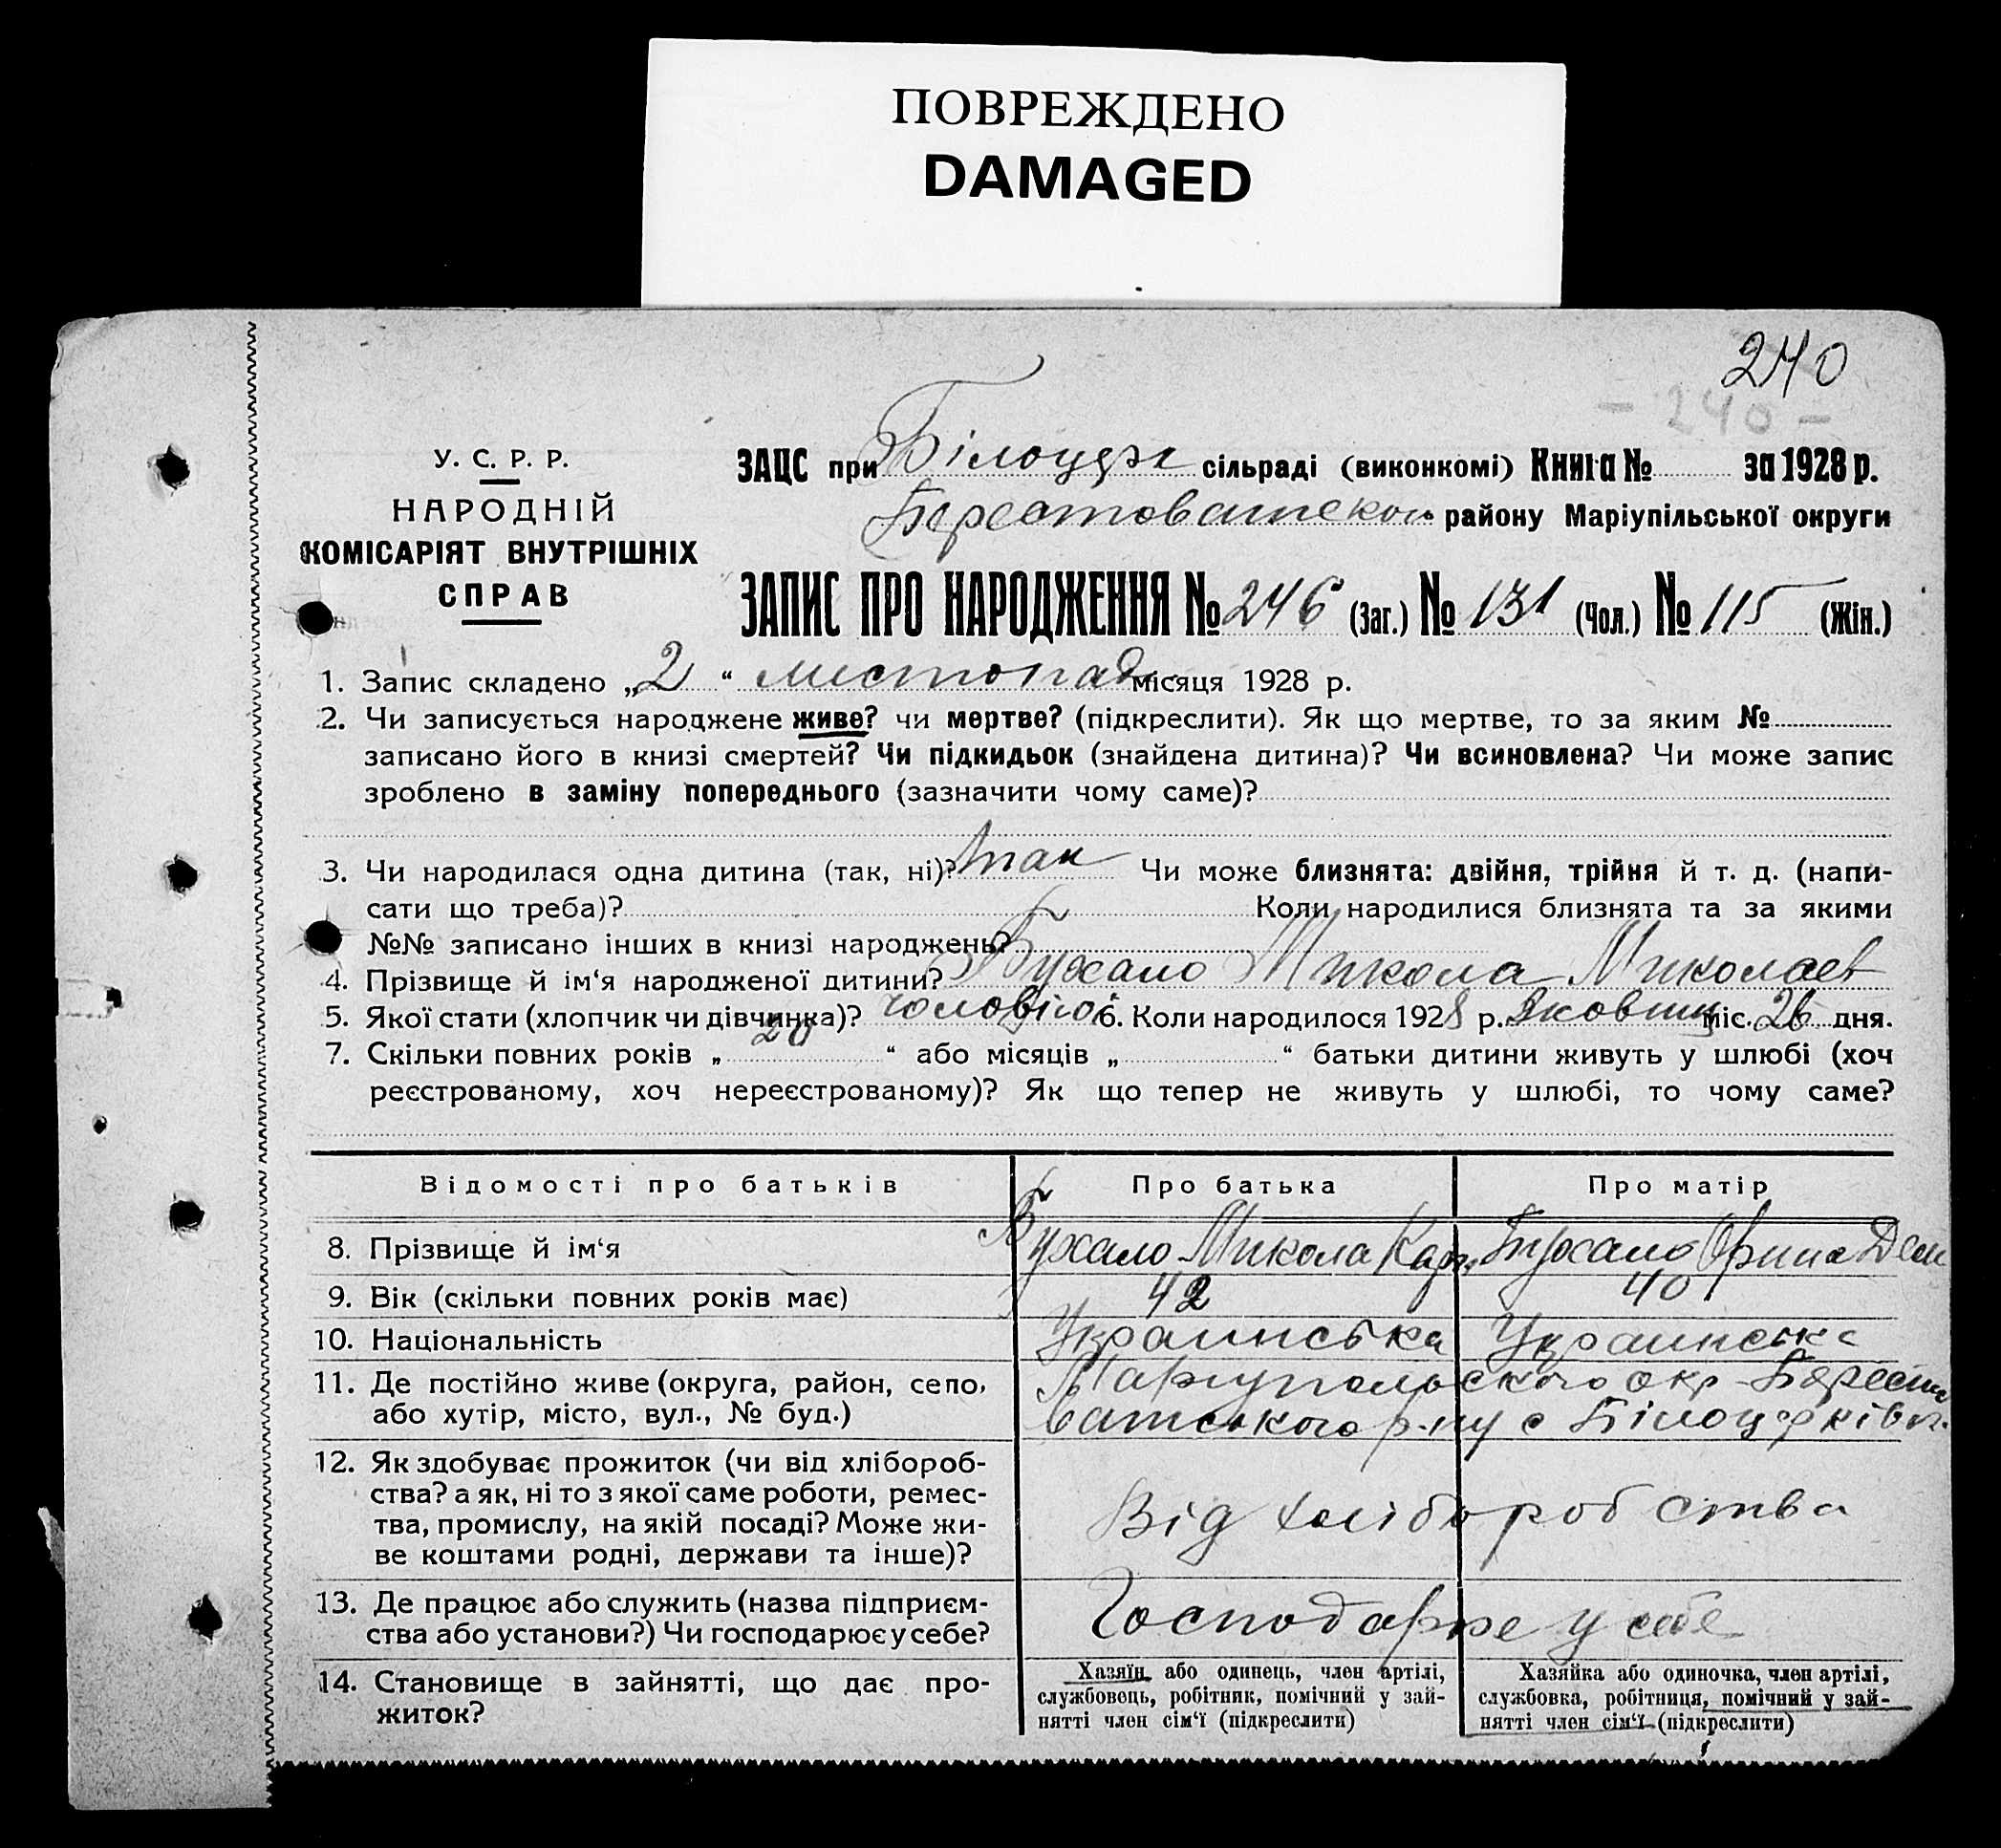 ПОВРЕЖДЕНО
DAMAGED
240
- 240 -
У. С. Р. Р.
НАРОДНІЙ
КОМІСАРІЯТ ВНУТРІШНІХ
СПРАВ
ЗАЦС при Білоцерк сільраді (виконкомі) Книга № за 1928 р.
Берестоватськом району Маріупільської округи
ЗАПИС ПРО НАРОДЖЕННЯ № 246 (Заг.) № 131 (Чол.) № 115 (Жін.)
1. Запис складено „2“ листопад місяця 1928 р.
2. Чи записується народжене живе? чи мертве? (підкреслити). Як що мертве, то за яким №
записано його в книзі смертей? Чи підкидьок (знайдена дитина)? Чи всиновлена? Чи може запис
зроблено в заміну попереднього (зазначити чому саме)?
3. Чи народилася одна дитина (так, ні)? так Чи може близнята: двійня, трійня й т. д. (напи-
сати що треба)? Коли народилися близнята та за якими
№№ записано інших в книзі народжень?
4. Прізвище й ім‘я народженої дитини? Бухало Микола Миколаев
5. Якої стати (хлопчик чи дівчинка)? чоловічої 6. Коли народилося 1928 р. Жовтня міс. 26 дня.
7. Скільки повних років „ 20 “ або місяців „ “ батьки дитини живуть у шлюбі (хоч
реєстрованому, хоч нереєстрованому)? Як що тепер не живуть у шлюбі, то чому саме?
Відомості про батьків
Про батька
Про матір
8. Прізвище й ім‘я
Бухало Микола Кар.
Бухало Орина Дем
9. Вік (скільки повних років має)
42
40
10. Національність
Украинська
Украинська
11. Де постійно живе (округа, район, село,
або хутір, місто, вул., № буд.)
Маріупольского окр Берестo
ватського р-ну с Білоцерківк.
12. Як здобуває прожиток (чи від хлібороб-
ства? а як, ні то з якої саме роботи, ремес-
тва, промислу, на якій посаді? Може жи-
ве коштами родні, держави та інше)?
Від хліборобства
13. Де працює або служить (назва підприєм-
ства або установи?) Чи господарює у себе?
Господарює у себе
14. Становище в зайнятті, що дає про-
житок?
Хазяїн або одинець, член артілі,
службовець, робітник, помічний у зай-
нятті член сім‘ї (підкреслити)
Хазяйка або одиночка, член артілі,
службовка, робітниця, помічний у зай-
нятті член сім‘ї (підкреслити)